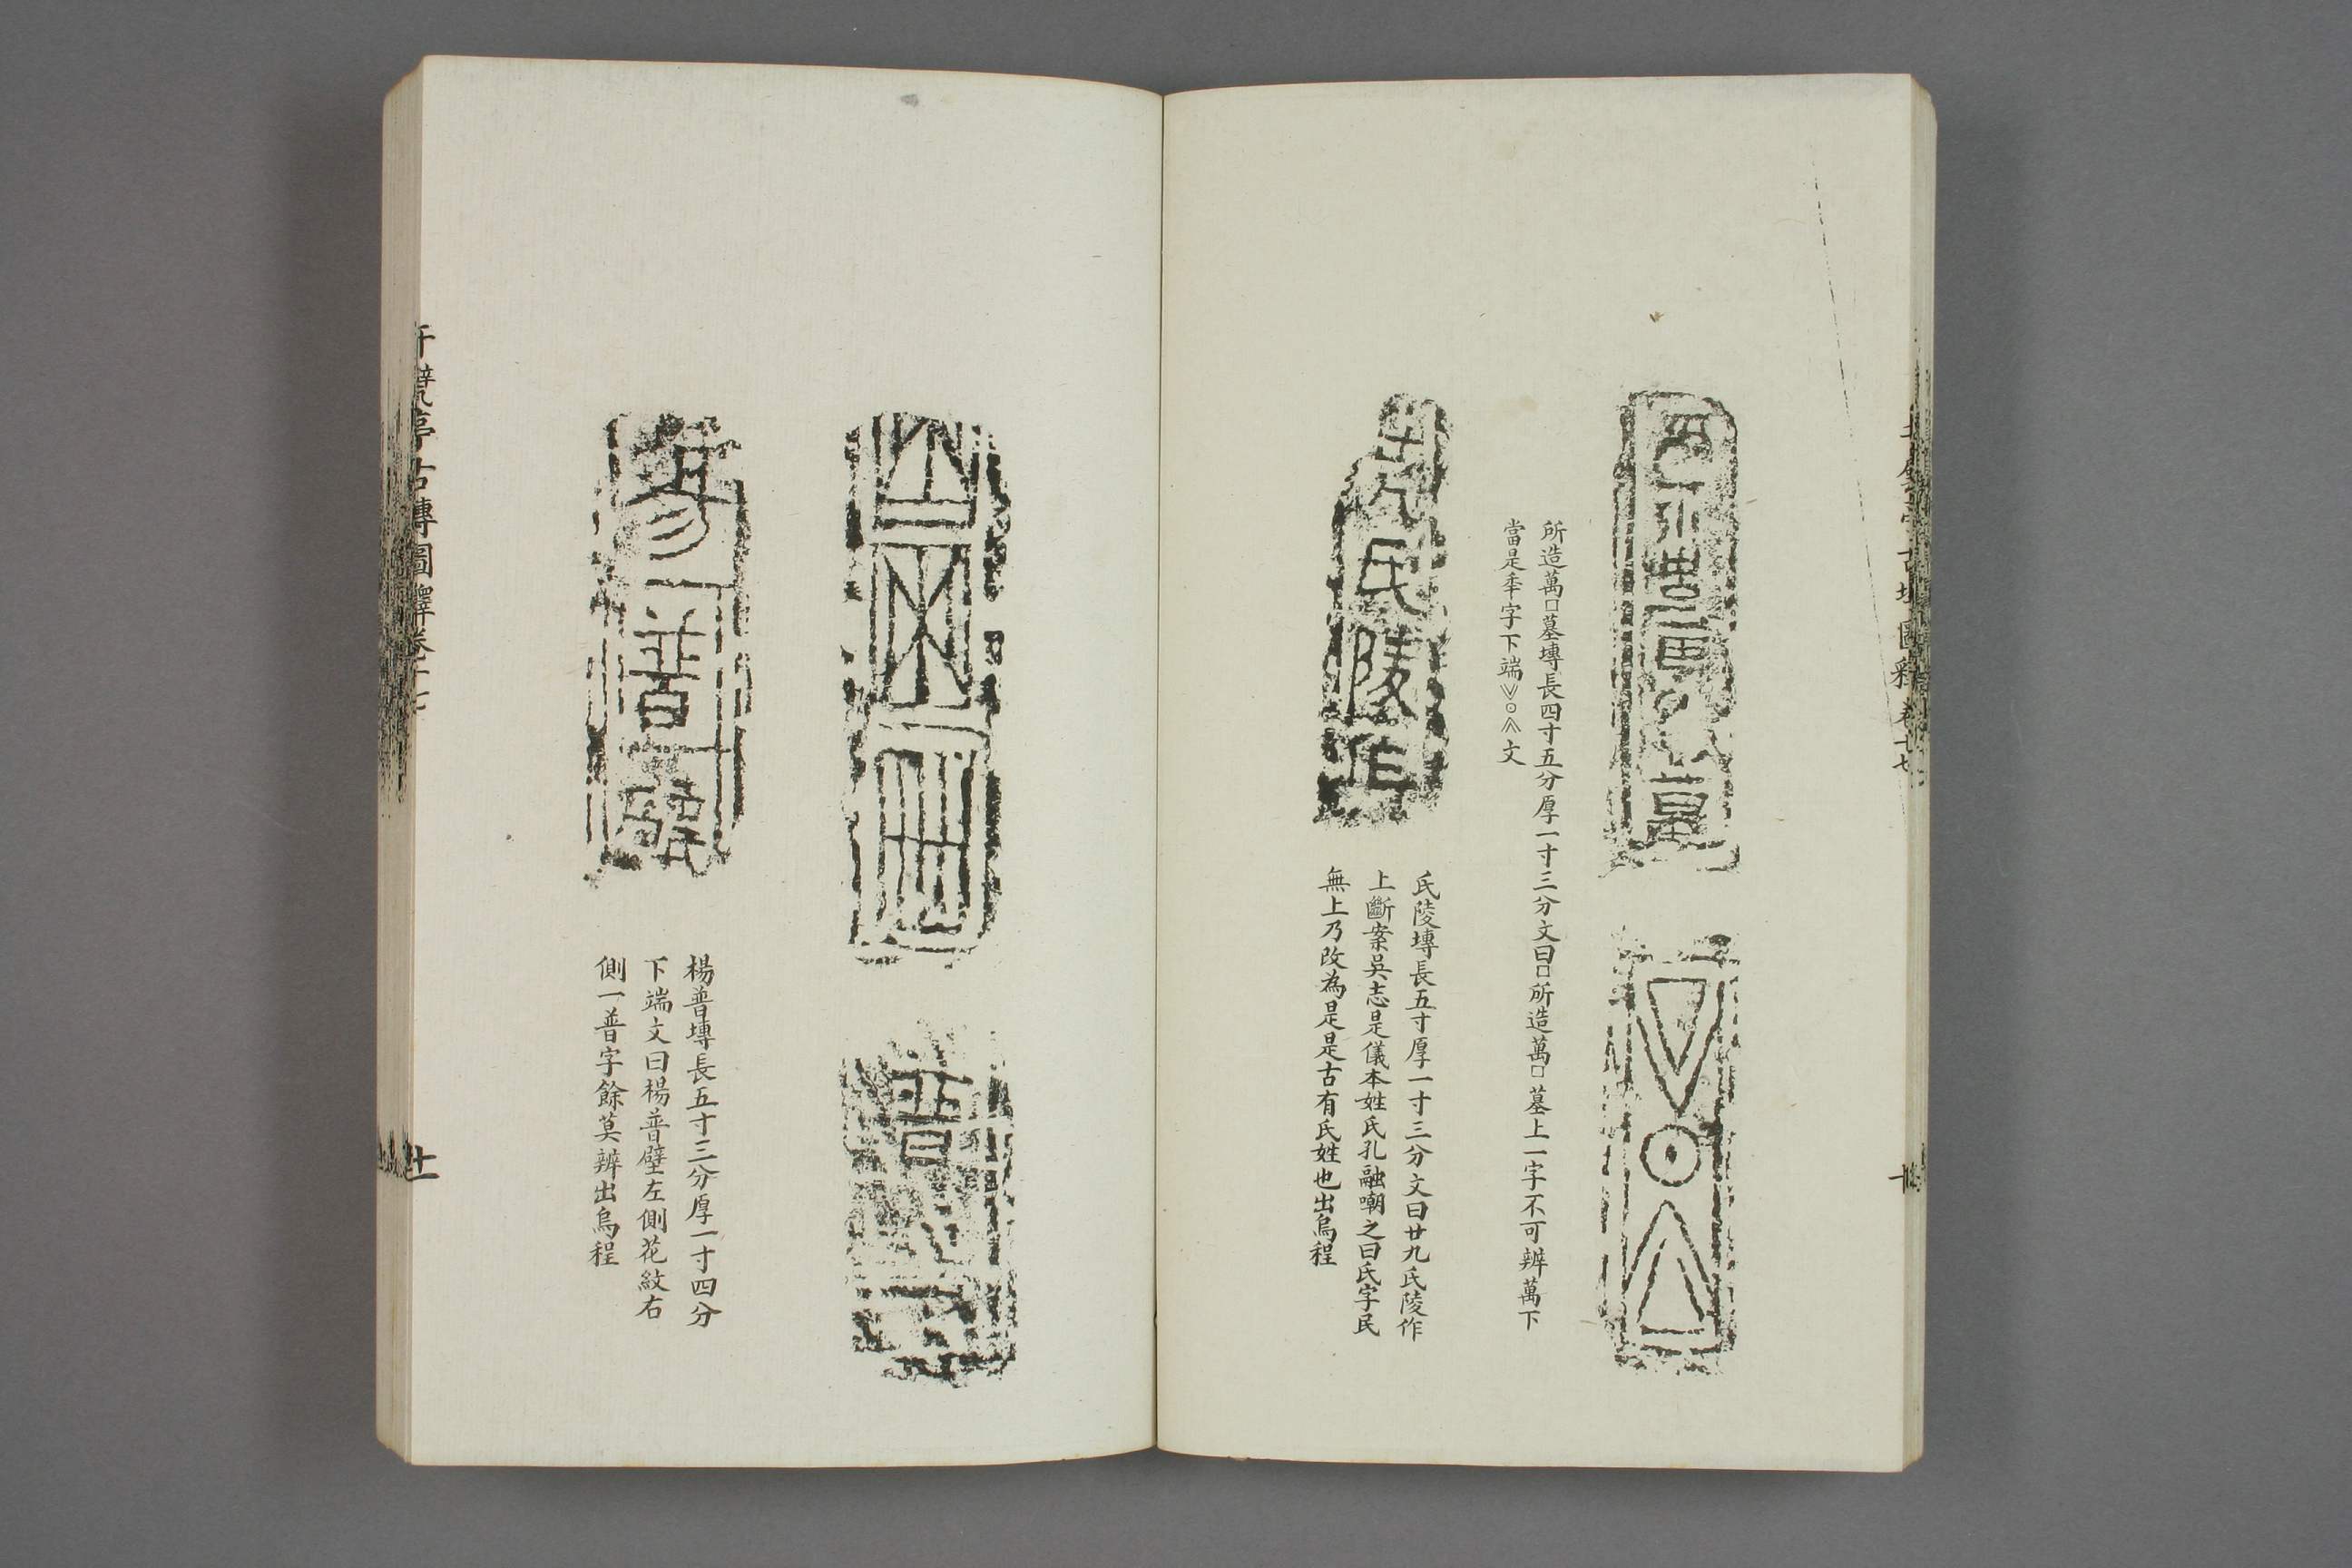 所造萬□墓塼長四寸五分厚一寸三分文曰□所造萬□墓上一字不可辨萬下
當是年字下端⩔○⩓文
廿九氏陵作
氏陵塼長五寸厚一寸三分文曰廿九氏陵作
上斷案吳志是儀本姓氏孔融嘲之曰氏字民
無上乃改為是是古有氏姓也出烏程
普
楊普
楊普塼長五寸三分厚一寸四分
下端文曰楊普壁左側花紋右
側一普字餘莫辨出烏程
千甓亭古塼圖釋卷十七
十一